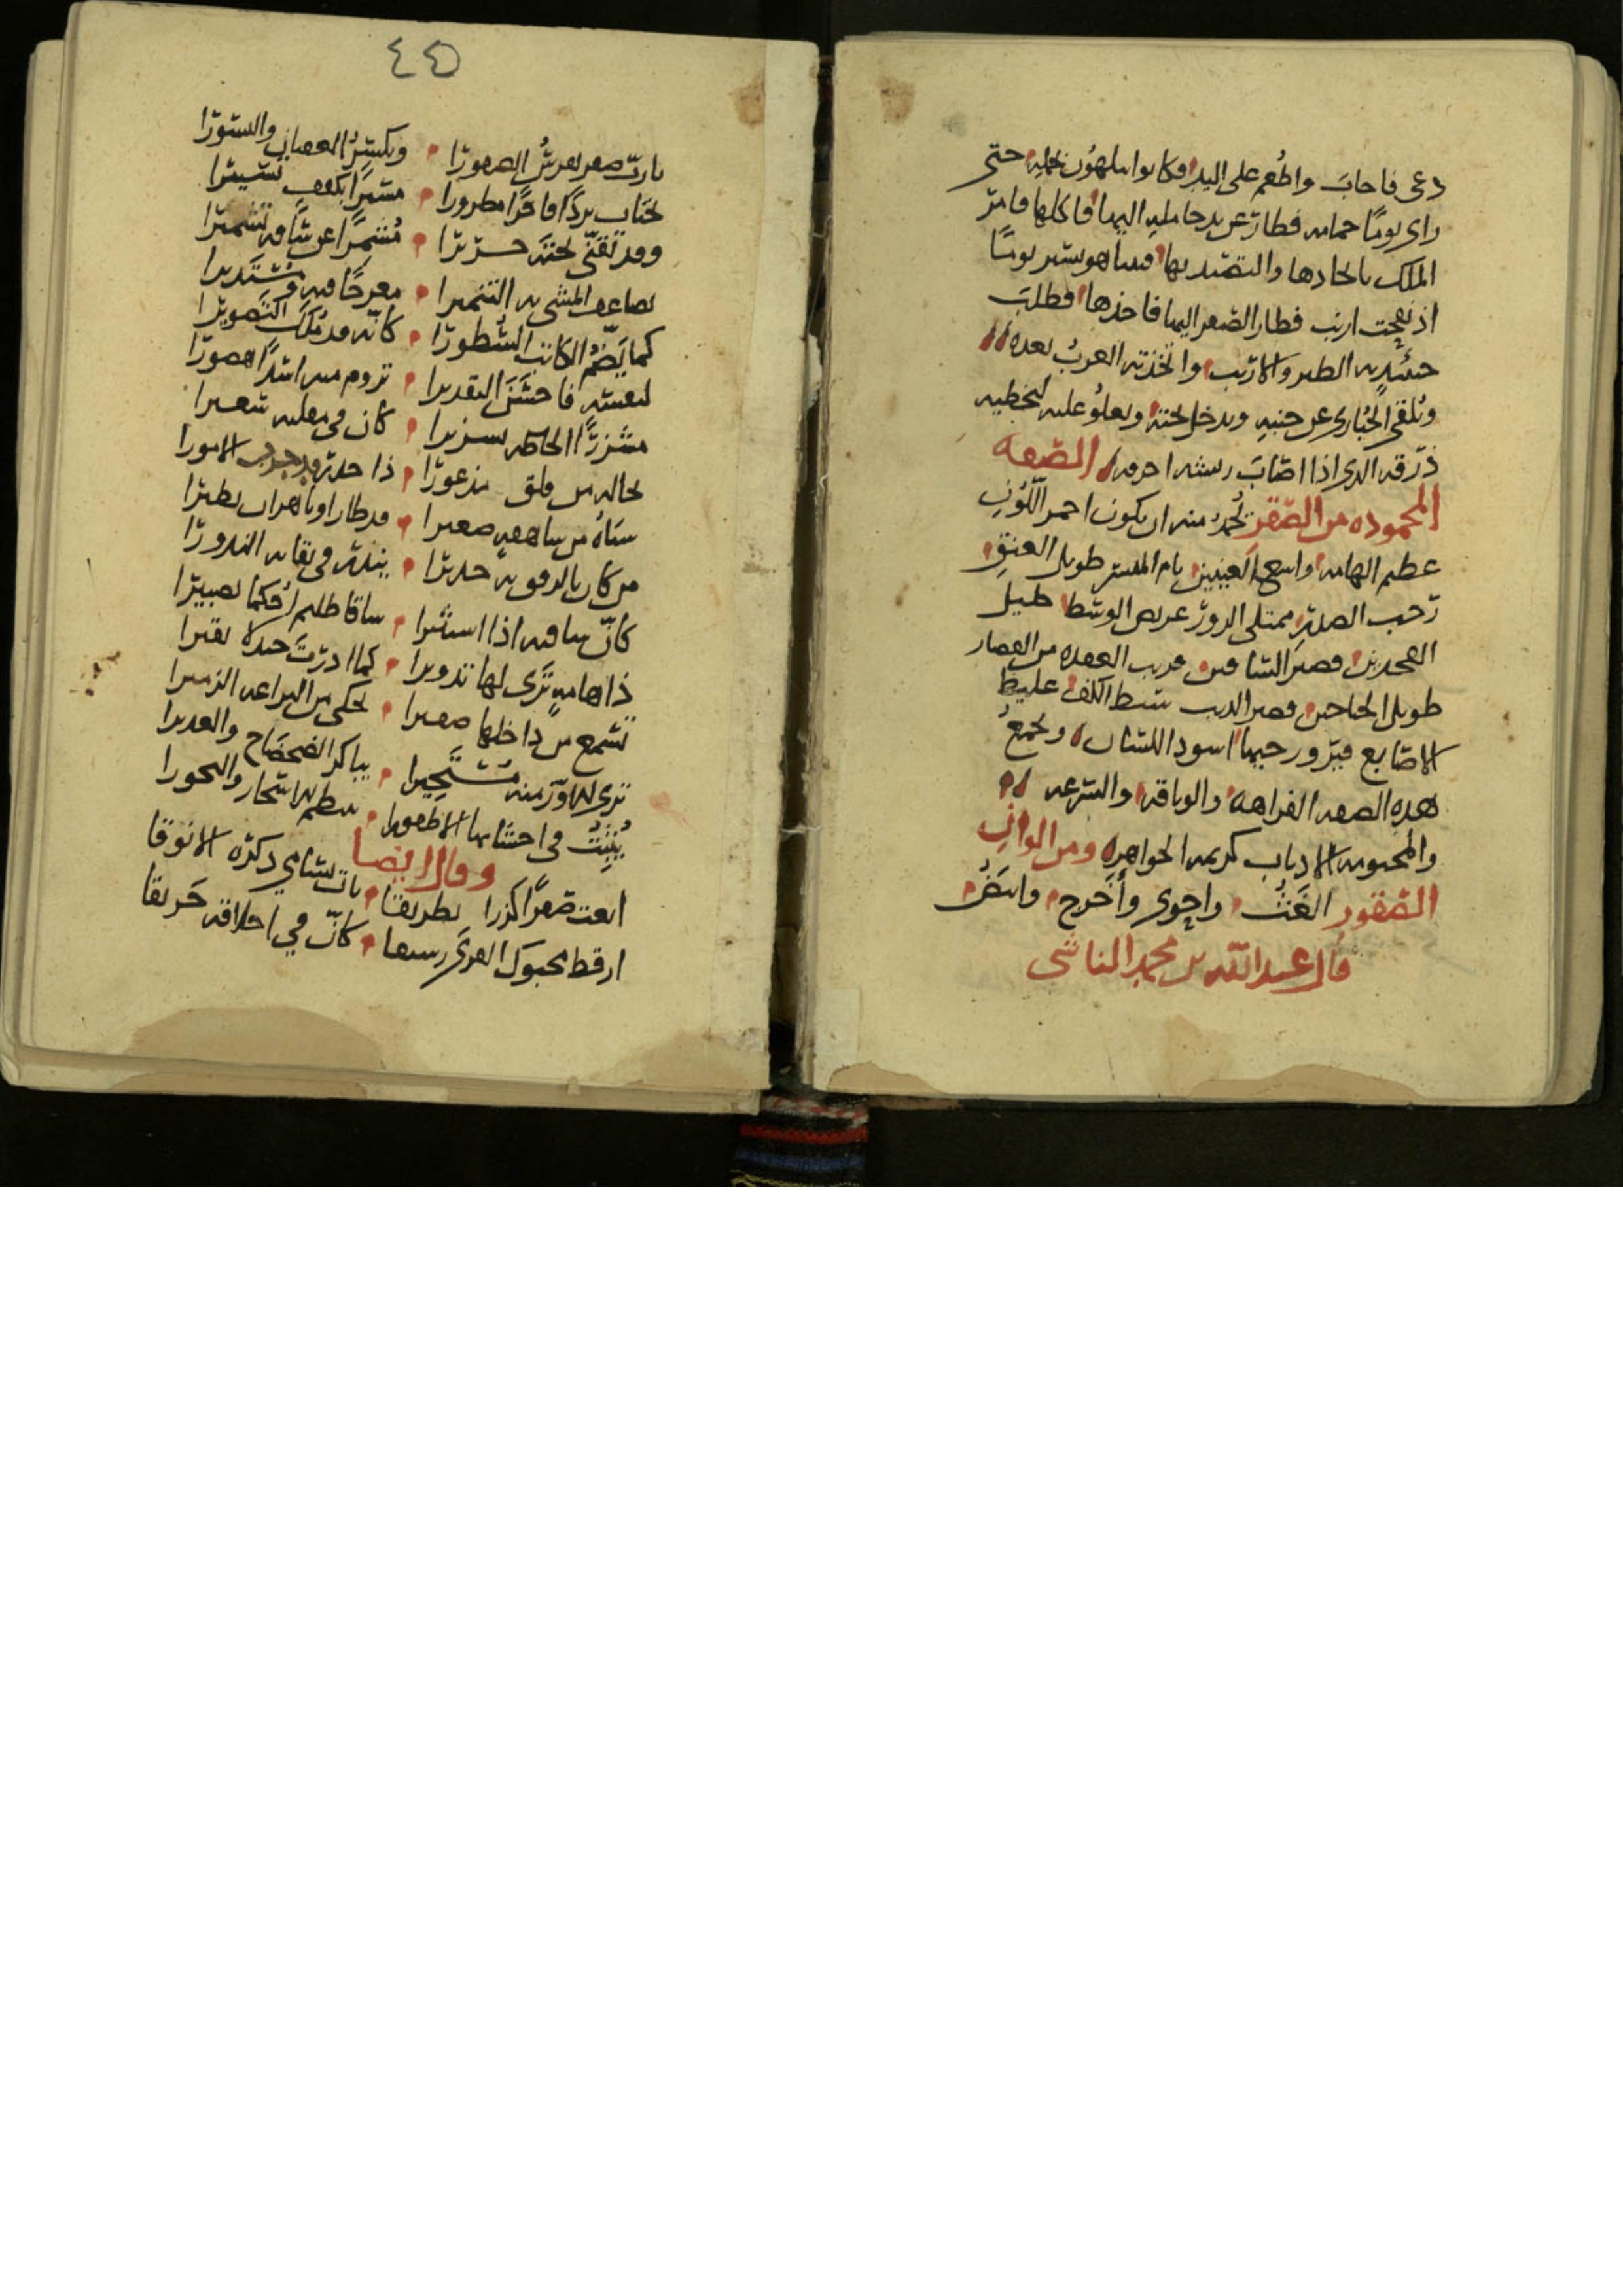 دعى فاجاب واطعم على اليد وكانوا يلهون بحمله حتى
راى يوما حمامه فطار عن يد حامله اليها فاكلها فامر
الملك باتخادها والتصيد بها فبينا هو يسير يوما
اذ نفجت ارنب فطار الصقر اليها فاخذها فطلب
حينئذ به الطير والارنب واتخذته العرب بعده
وتلقى الحبارى عن جنبيه ويدخل تحته ويعلو عليه لتخطيه
ذرقه الدى اذا اصاب ريشه احرقه الصفه
المحموده من الصقر تحمد منه ان يكون احمر اللون
عظيم الهامه واسع العينين تام المنسر طويل العنق
رحب الصدر ممتلى الزور عريض الوسط جليل
الفخدين قصير الساقين قريب العقده من الفقار
طويل الجناحين قصير الدنب سبط الكف غليظ
الاصابع فيروزجيها اسود اللسان وتجمع
هده الصفه الفراهه والوثاقه والسرعه
كريمه الجواهر ومن الوان
الصقور واحوى واخرج وابيض
قال عبد الله بن محمد الناشى
٤٥
يا رب صقر يفرس الصقورا ويكسر العقبان والنسورا
يجتاب بردا فاخرا مطرورا مسيرا بكتفيه تسييرا
وقد تقبى تحته حريرا مشمرا عن ساقه تشميرا
يضاعف الوشى به التنميرا معرجا فيه ومستديرا
كما يضم الكاتب السطورا كانه قد ملك التصويرا
لنفسه فاحسن التقديرا تروم منه اسدا هصورا
كان فى مقلته سعيرا
تخاله من قلق مذعورا ذا حدر قد جرب الامورا
قد طار او ناهز ان يطيرا
من كان بالرفق به جديرا ينذر فى بقائه النذورا
كان ساقيه اذا استثيرا ساقا ظليم احكما تضبيرا
ذا هامة ترى لها تدويرا كما ادرت جندلا نقيرا
تسمع من داخلها صفيرا تحكى من اليراعه الزميرا
ترى الاوز منه مستجيرا يباكر الضحضاح والغديرا
يثبت فى احشائها الاظفورا
وقال ايضا
انعت صقرا كرزا بطريقا بات يناي ذكره الانوقا
ارقط محبوك القرى رشيقا كان في احداقه حريقا